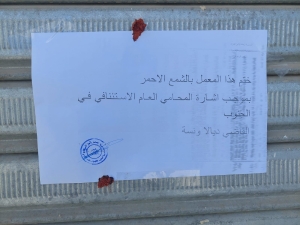 ختم هذا المعمل بالشمع الاحمر
بموجب اشارة المحامي العام الاستئنافي في
الجنوب
القاضي ديالا ونسة